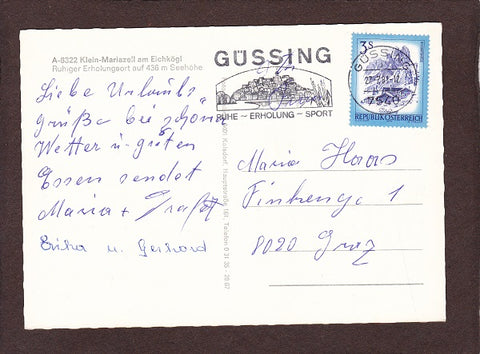 A-8322 Klein-Mariazell am Eichkögl
Ruhiger Erholungsort auf 436 m Seehöhe
Liebe Urlaubs
grüße bei schönem
Wetter u. guten
Essen sendet
Maria +
Erika u. Gerhard
GÜSSING
RUHE – ERHOLUNG – SPORT
GÜSSING
7540
3 S
REPUBLIK ÖSTERREICH
An
Maria Haas
1
8020 Graz